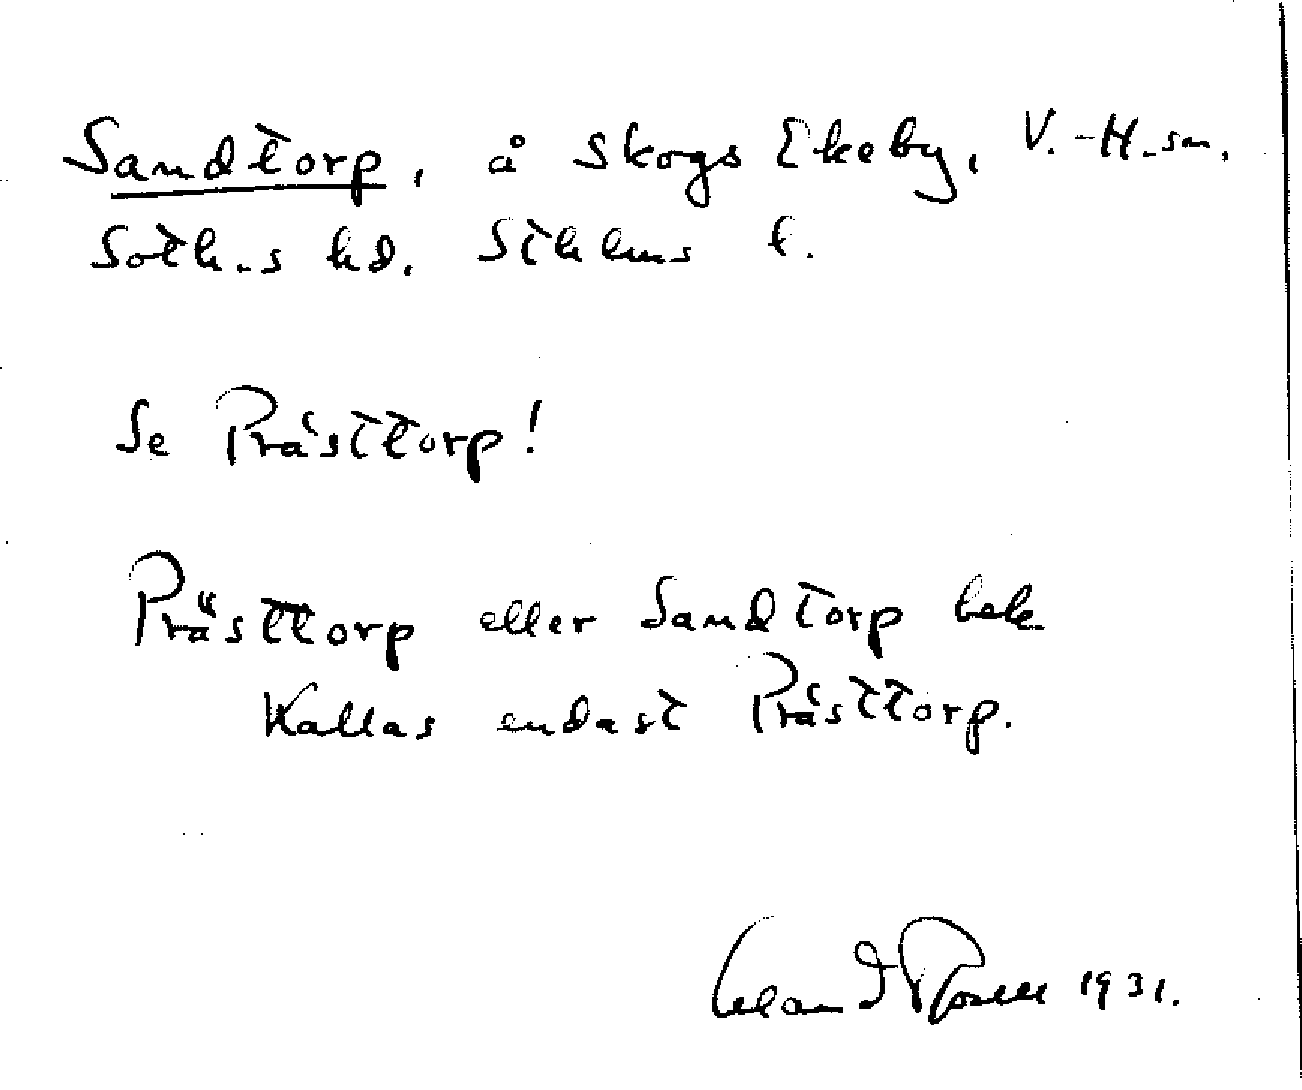 Sandtorp, å Skogs Ekeby, V.-H.sn,
Soth.s hd. Sthlms l.
Se Prästtorp!
Prästtorp eller Sandtorp bek
Kallas endast Prästtorp.
1931.